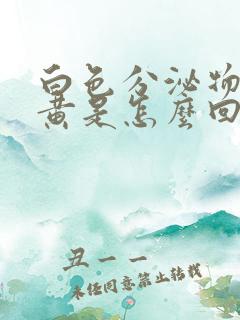 白色分泌物
黄是怎麼回
丑一一
未经同意禁止转载